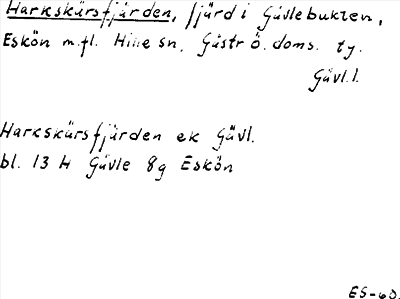 Harkskärsfjärden, fjärd i Gävlebukten,
Eskön m.fl. Hille sn, Gästr Ö. doms. tg.
Gävl.l.
Harkskärsfjärden ek Gävl.
bl. 13 H Gävle 8g Eskön
ES-60.